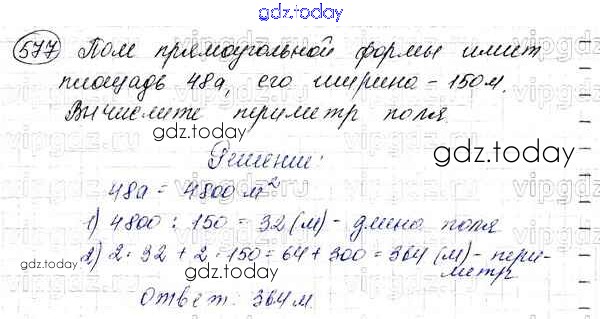 gdz.today
577 Поле прямоугольной формы имеет
площадь 48а, его ширина - 150м.
Вычислите периметр поля.
gdz.today
gdz.today
Решение:
48а = 4800 м²
1) 4800 : 150 = 32 (м) - длина поля
2) 2 · 32 + 2 · 150 = 64 + 300 = 364 (м) - пери-
метр
gdz.today
gdz.today
Ответ: 364 м.